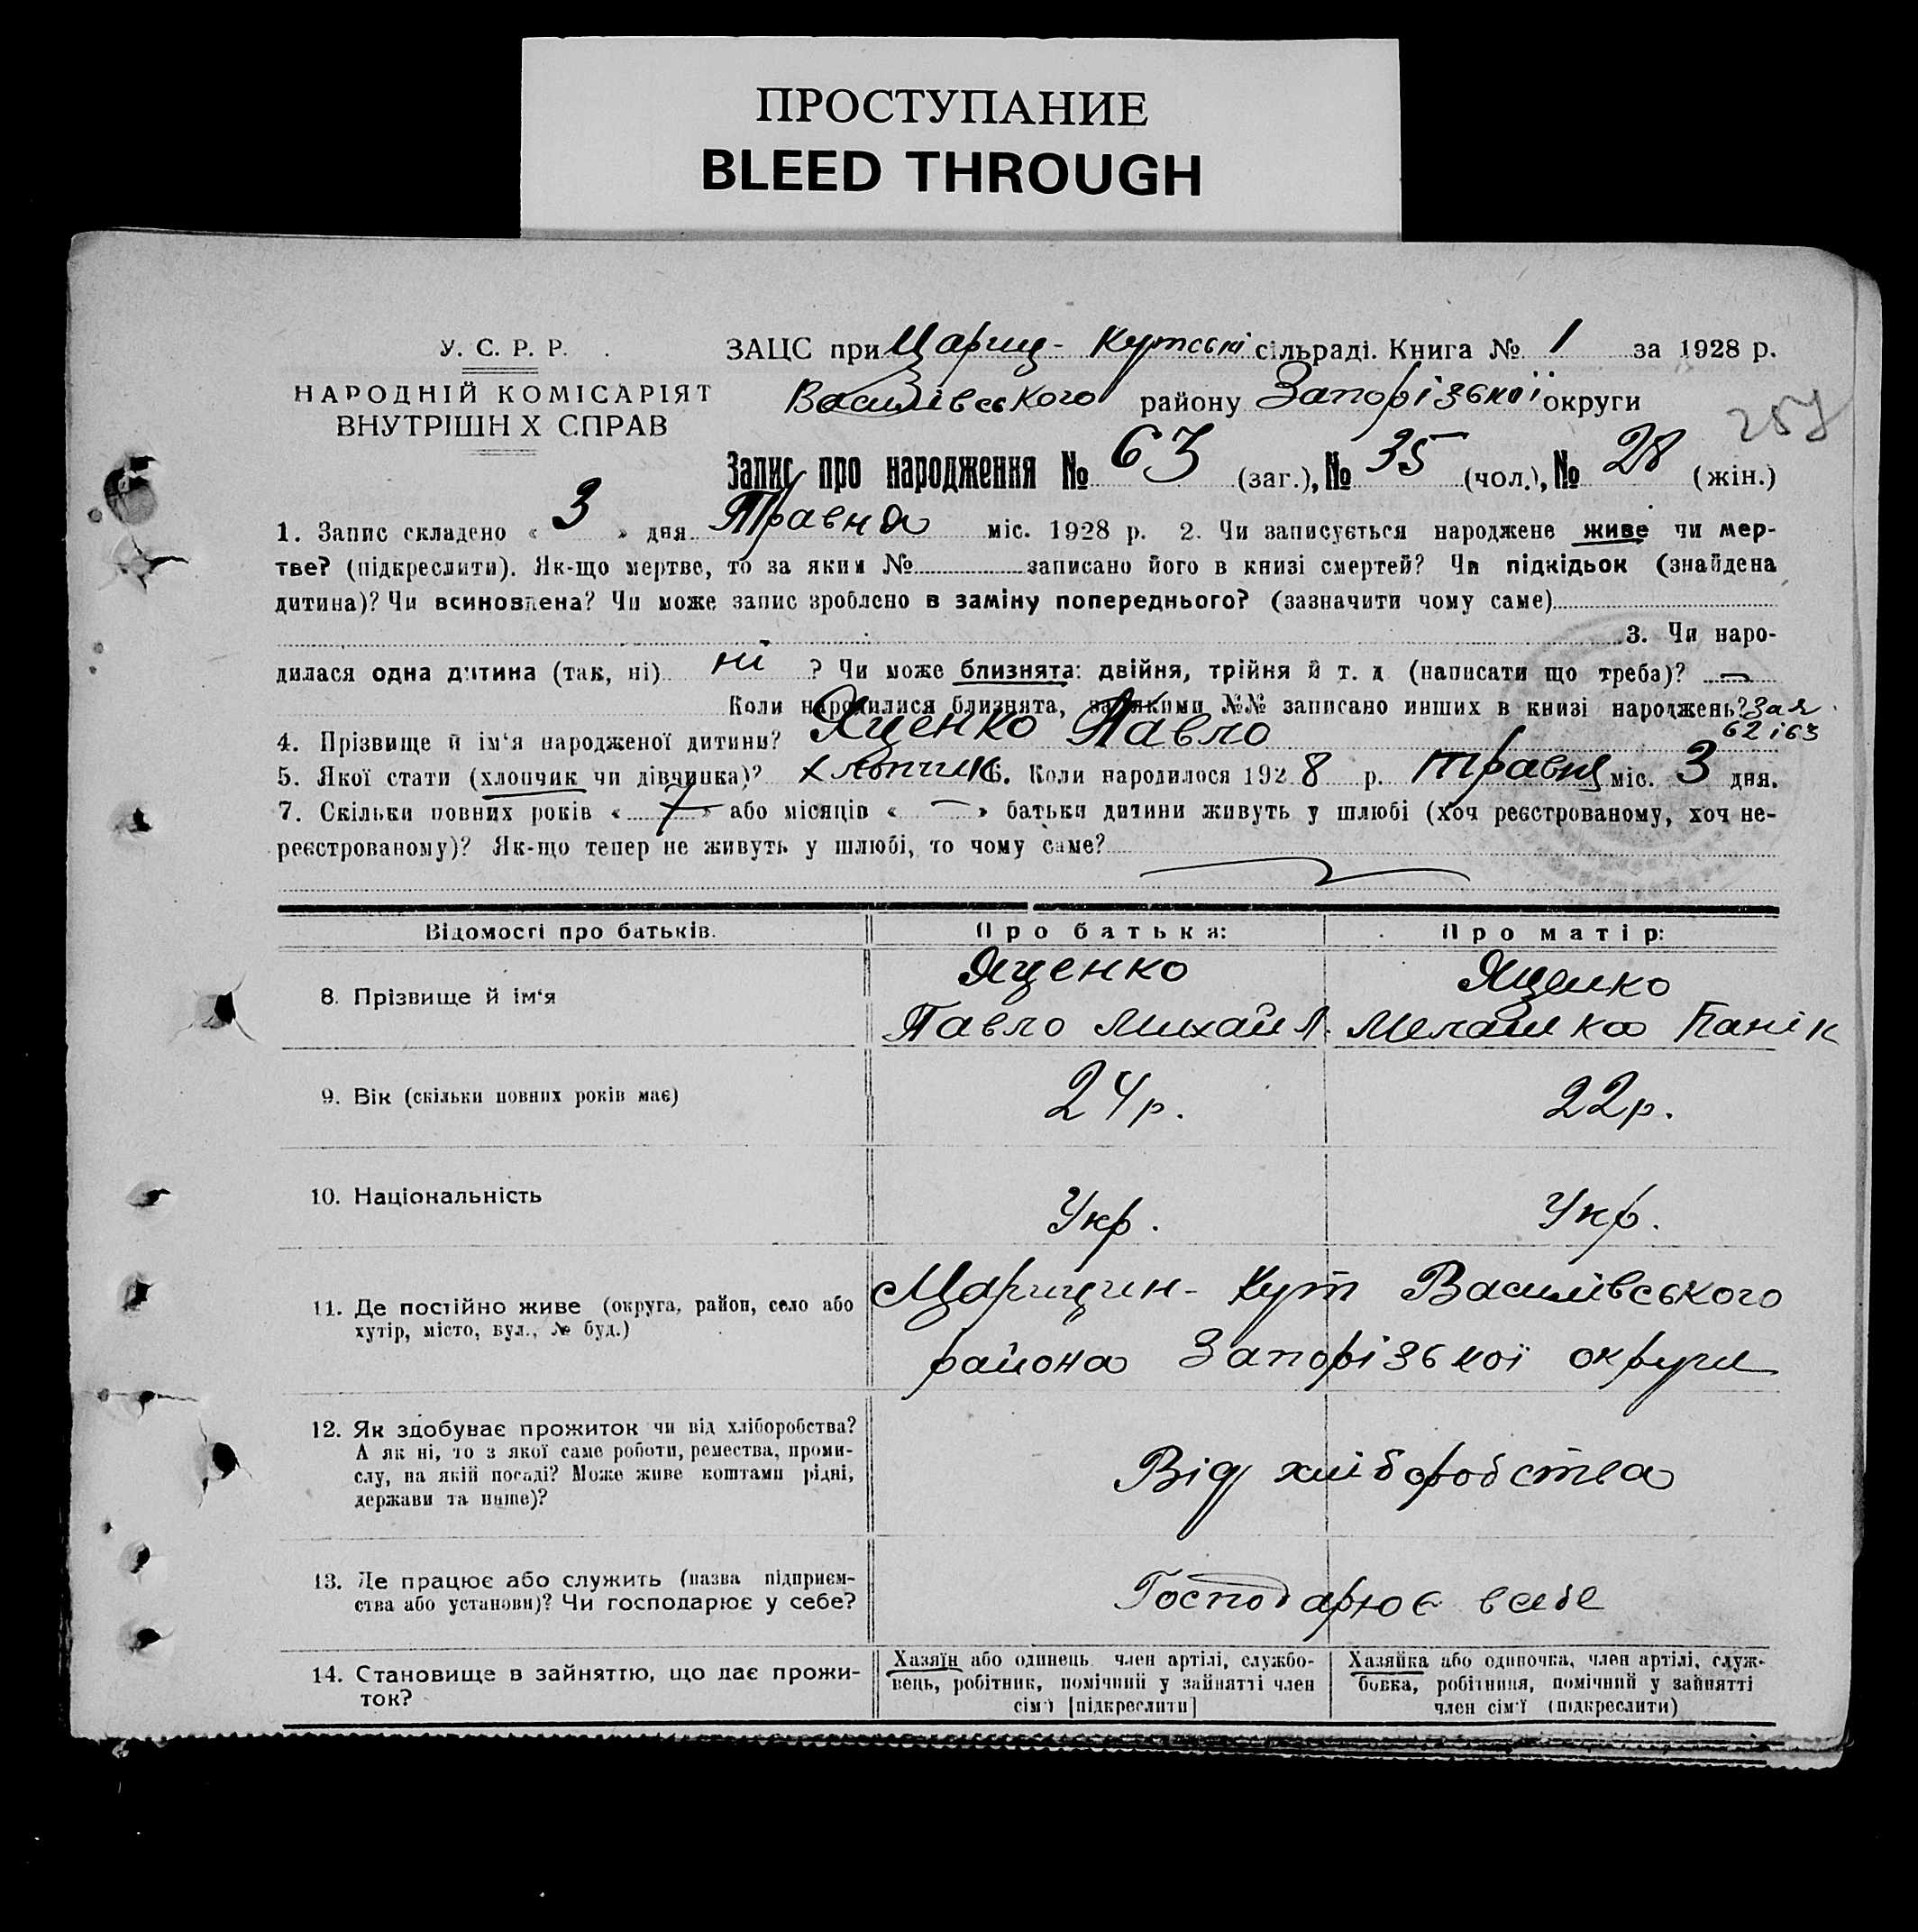 ПРОСТУПАНИЕ
BLEED THROUGH
У. С. Р. Р.
НАРОДНІЙ КОМІСАРІЯТ
ВНУТРІШН Х СПРАВ
ЗАЦС при Цариц-Кутські сільраді. Книга № 1 за 1928 р.
Василівського району Запорізької округи
257
Запис про народження № 63 (заг.), № 35 (чол.), № 28 (жін.)
1. Запис складено « 3 » дня Травня міс. 1928 р. 2. Чи записується народжене живе чи мер-
тве? (підкреслити). Як-що мертве, то за яким № записано його в книзі смертей? Чи підкідьок (знайдена
дитина)? Чи всиновлена? Чи може запис зроблено в заміну попереднього? (зазначити чому саме)
3. Чи наро-
дилася одна дитина (так, ні) ні ? Чи може близнята: двійня, трійня й т. д (написати що треба)? —
Коли народилися близнята, за якими №№ записано инших в книзі народжень? За №
62 і 63
4. Прізвище й ім‘я народженої дитини? Яценко Павло
5. Якої стати (хлопчик чи дівчинка)? хлопчик 6. Коли народилося 1928 р. травня міс. 3 дня.
7. Скільки повних років « 7 » або місяців « — » батьки дитини живуть у шлюбі (хоч реєстрованому, хоч не-
реєстрованому)? Як-що тепер не живуть у шлюбі, то чому саме?
Відомості про батьків. Про батька: Про матір:
8. Прізвище й ім‘я Яценко Павло Михайл. Яценко Мелашка Панік
9. Вік (скільки повних років має) 24 р. 22 р.
10. Національність Укр. Укр.
11. Де постійно живе (округа, район, село або
хутір, місто, вул., № буд.)
Царицин-Кут Василівського
района Запорізької округи
12. Як здобуває прожиток чи від хліборобства?
А як ні, то з якої саме роботи, ремества, проми-
слу, на якій посаді? Може живе коштами рідні,
держави та инше)?
Від хліборобства
13. Де працює або служить (назва підприєм-
ства або установи)? Чи господарює у себе?
Господарює в себе
14. Становище в зайняттю, що дає прожи-
ток?
Хазяїн або одинець член артілі, службо-
вець, робітник, помічний у зайнятті член
сім‘ї [підкреслити]
Хазяйка або одиночка, член артілі, служ-
бовка, робітниця, помічний у зайнятті
член сім‘ї (підкреслити)